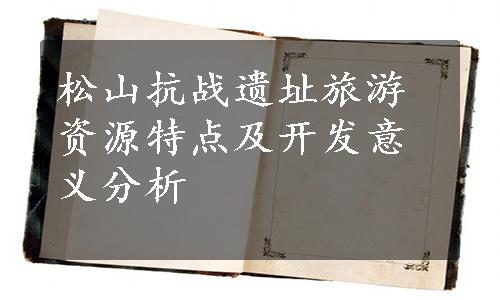 松山抗战遗址旅游
资源特点及开发意
义分析